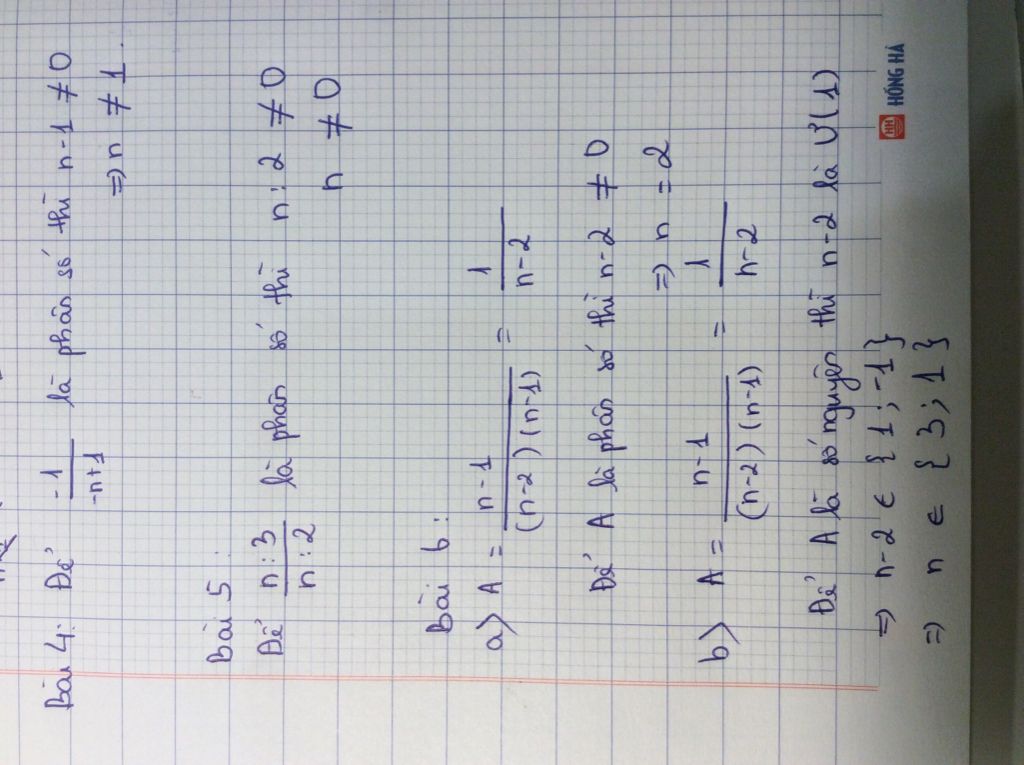 Bài 4: Để -1/-n+1 là phân số thì n-1 ≠ 0
=> n ≠ 1.
Bài 5:
Để n:3/n:2 là phân số thì n:2 ≠ 0
n ≠ 0
Bài 6:
a> A = n-1/(n-2)(n-1) = 1/n-2
Để A là phân số thì n-2 ≠ 0
=> n = 2
b> A = n-1/(n-2)(n-1) = 1/n-2
Để A là số nguyên thì n-2 là Ư(1)
=> n-2 ∈ {1; -1}
=> n ∈ {3; 1}
HH HỒNG HÀ